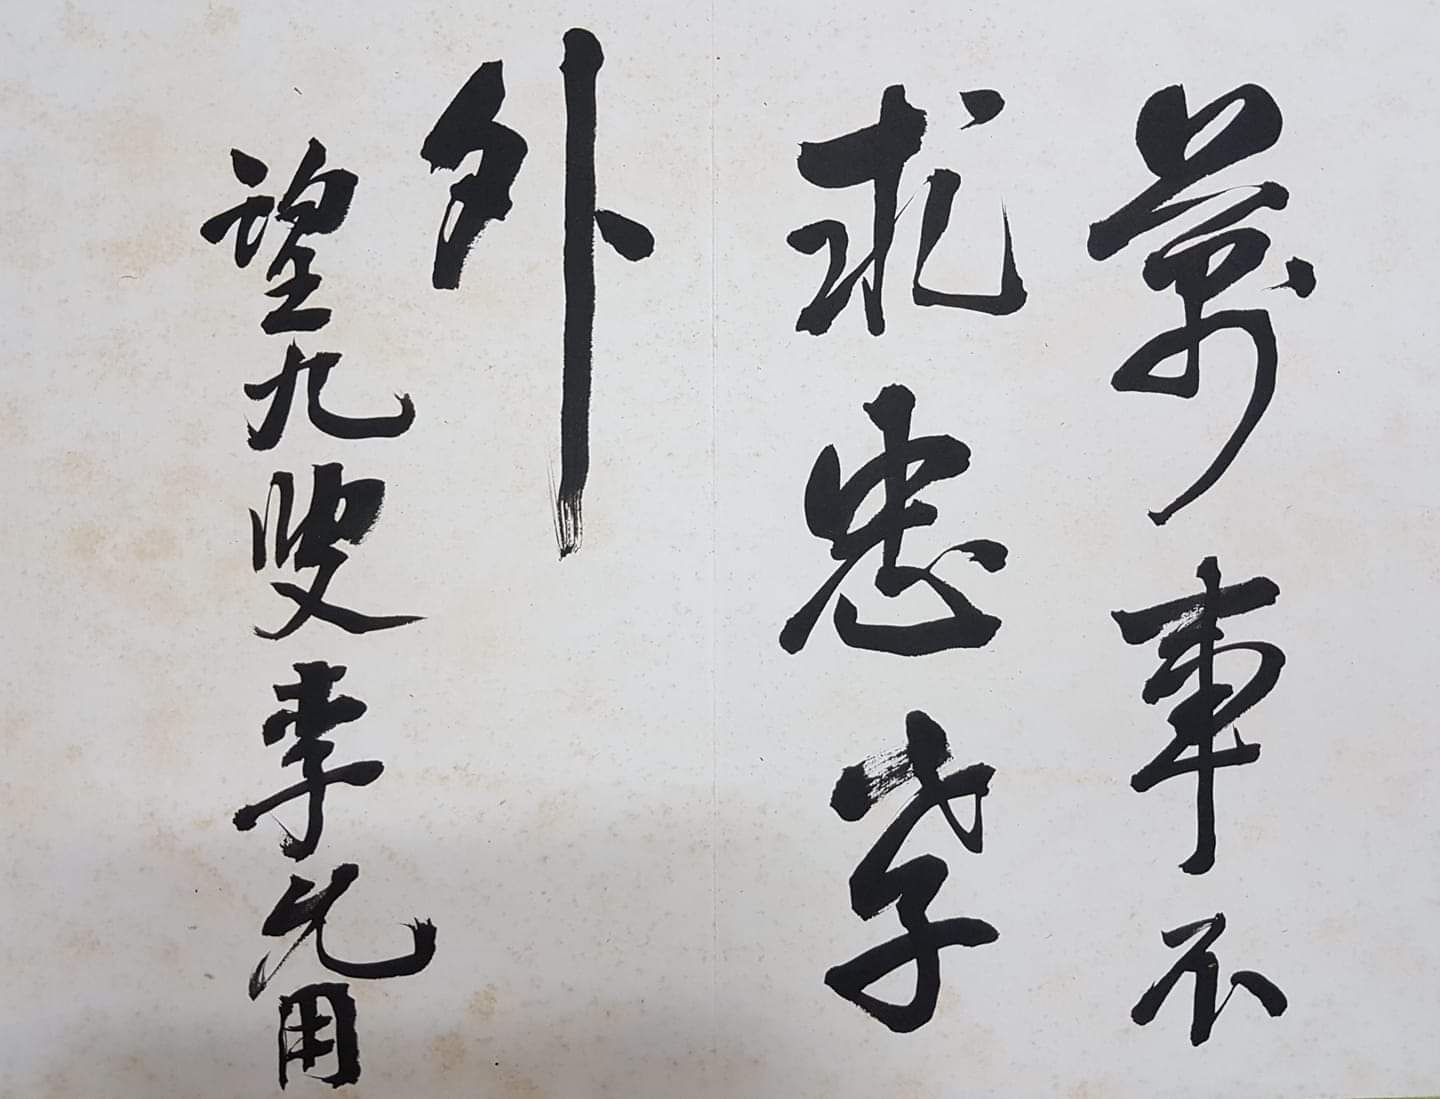 萬事不
求忠孝
外
望九叟李用